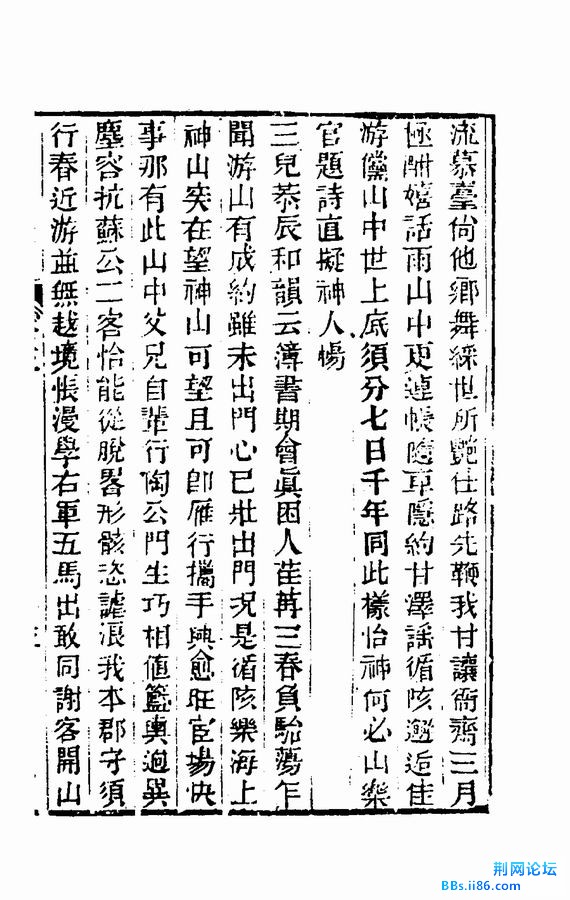 流慕臺尙他鄉舞綵世所艷仕路先鞭我甘讓衙齋三月
極酣嬉話雨山中更連帳隨車隱約甘澤謠循陔邂逅佳
游儻山中世上底須分七日千年同此樣怡神何必山樂
官題詩直擬神人暢
三兒恭辰和韻云簿書期會眞困人荏苒三春負駘蕩乍
聞游山有成約雖未出門心已壯出門况是循陔樂海上
神山突在望神山可望且可卽雁行攜手興愈旺宦場快
事那有此山中父兄自輩行陶公門生巧相値籃輿迥異
塵容抗蘇公二客恰能從脫畧形骸恣謔浪我本郡守須
行春近游並無越境悵漫學右軍五馬出敢同謝客開山
荆网论坛
BBs.ii86.com